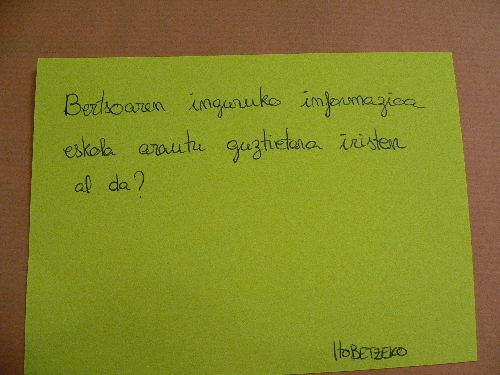 Bertsoaren inguruko informazioa
eskola arautu guztietara iristen
al da?
HOBETZEKO